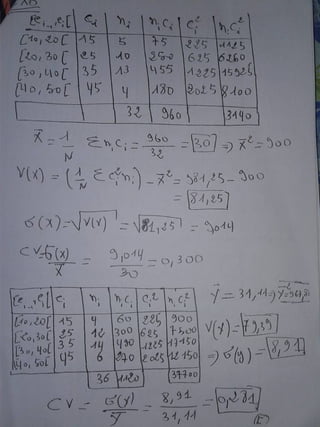 [e_{i-1}, e_i[ | c_i | n_i | n_i c_i | c_i² | n_i c_i²
[10, 20[ | 15 | 5 | 75 | 225 | 1125
[20, 30[ | 25 | 10 | 250 | 625 | 6250
[30, 40[ | 35 | 13 | 455 | 1225 | 15925
[40, 50[ | 45 | 4 | 180 | 2025 | 8100
32 | 960 | 3140
X̄ = 1/N Σ n_i c_i = 960/32 = 30 ⇒ X̄² = 900
V(X) = (1/N Σ c_i² n_i) - X̄² = 981,25 - 900
= 81,25
σ(X) = √V(X) = √81,25 = 9,014
CV = σ(X)/X̄ = 9,014/30 = 0,300
[e_{i-1}, e_i[ | c_i | n_i | n_i c_i | c_i² | n_i c_i²
[10, 20[ | 15 | 4 | 60 | 225 | 900
[20, 30[ | 25 | 12 | 300 | 625 | 7500
[30, 40[ | 35 | 14 | 490 | 1225 | 17150
[40, 50[ | 45 | 6 | 270 | 2025 | 12150
36 | 1120 | 37700
ȳ = 31,11 ⇒
V(y) = 79,39
⇒ σ(y) = 8,91
CV = σ(y)/ȳ = 8,91/31,11 = 0,281